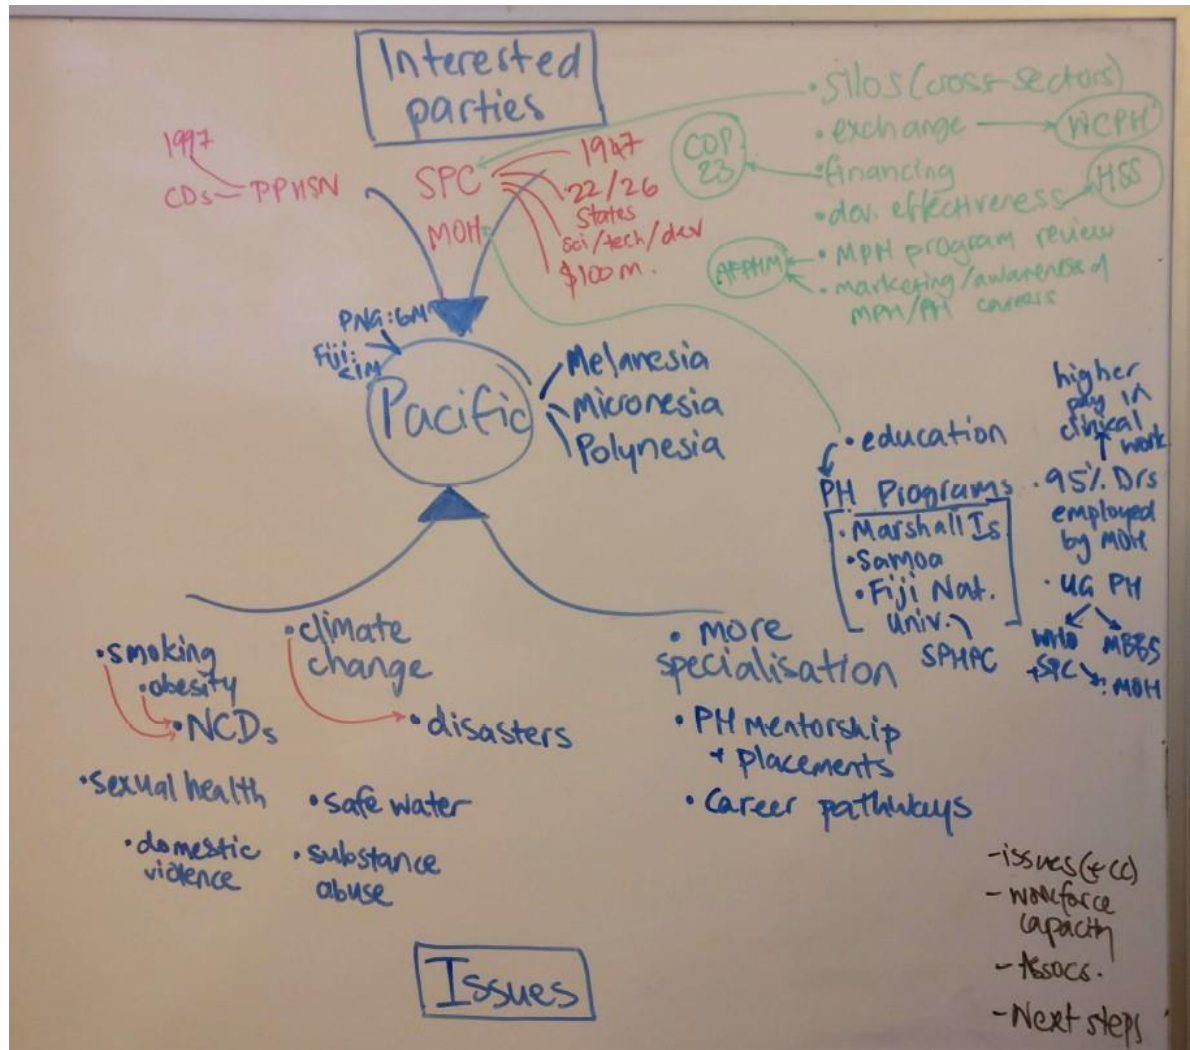 Interested
parties
1997
CDs - PPHSN
SPC
MOH
1947
22/26
States
sci/tech/dev
$100m.
• silos (cross-sectors)
• exchange → WCPH
COP
23
• financing
HSS
• dev. effectiveness
• MPH program review
• marketing/awareness of
MPH/PH careers
PNG: 6M
Fiji:
<1M
Pacific
Melanesia
Micronesia
Polynesia
• education
PH Programs
• Marshall Is
• Samoa
• Fiji Nat.
Univ.
SPHPC
higher
pay in
clinical
work
• 95% Drs
employed
by MOH
• UG PH
WHO
+SPC
MBBS
MOH
• smoking
• obesity
• NCDs
• climate
change
• disasters
• sexual health
• safe water
• domestic
violence
• substance
abuse
• more
specialisation
• PH mentorship
+ placements
• career pathways
- issues (+ CC)
- workforce
capacity
- Assocs.
- Next steps
Issues